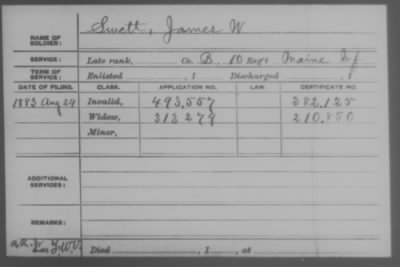 NAME OF SOLDIER: Swett, James W
SERVICE: Late rank, Co. B, 10 Reg't Maine Inf
TERM OF SERVICE: Enlisted , 1 Discharged , 1
DATE OF FILING. CLASS. APPLICATION NO. LAW. CERTIFICATE NO.
1883 Aug 24 Invalid, 493,557 282,125
Widow, 313279 210,850
Minor,
ADDITIONAL SERVICES:
REMARKS:
Died , 1 , at